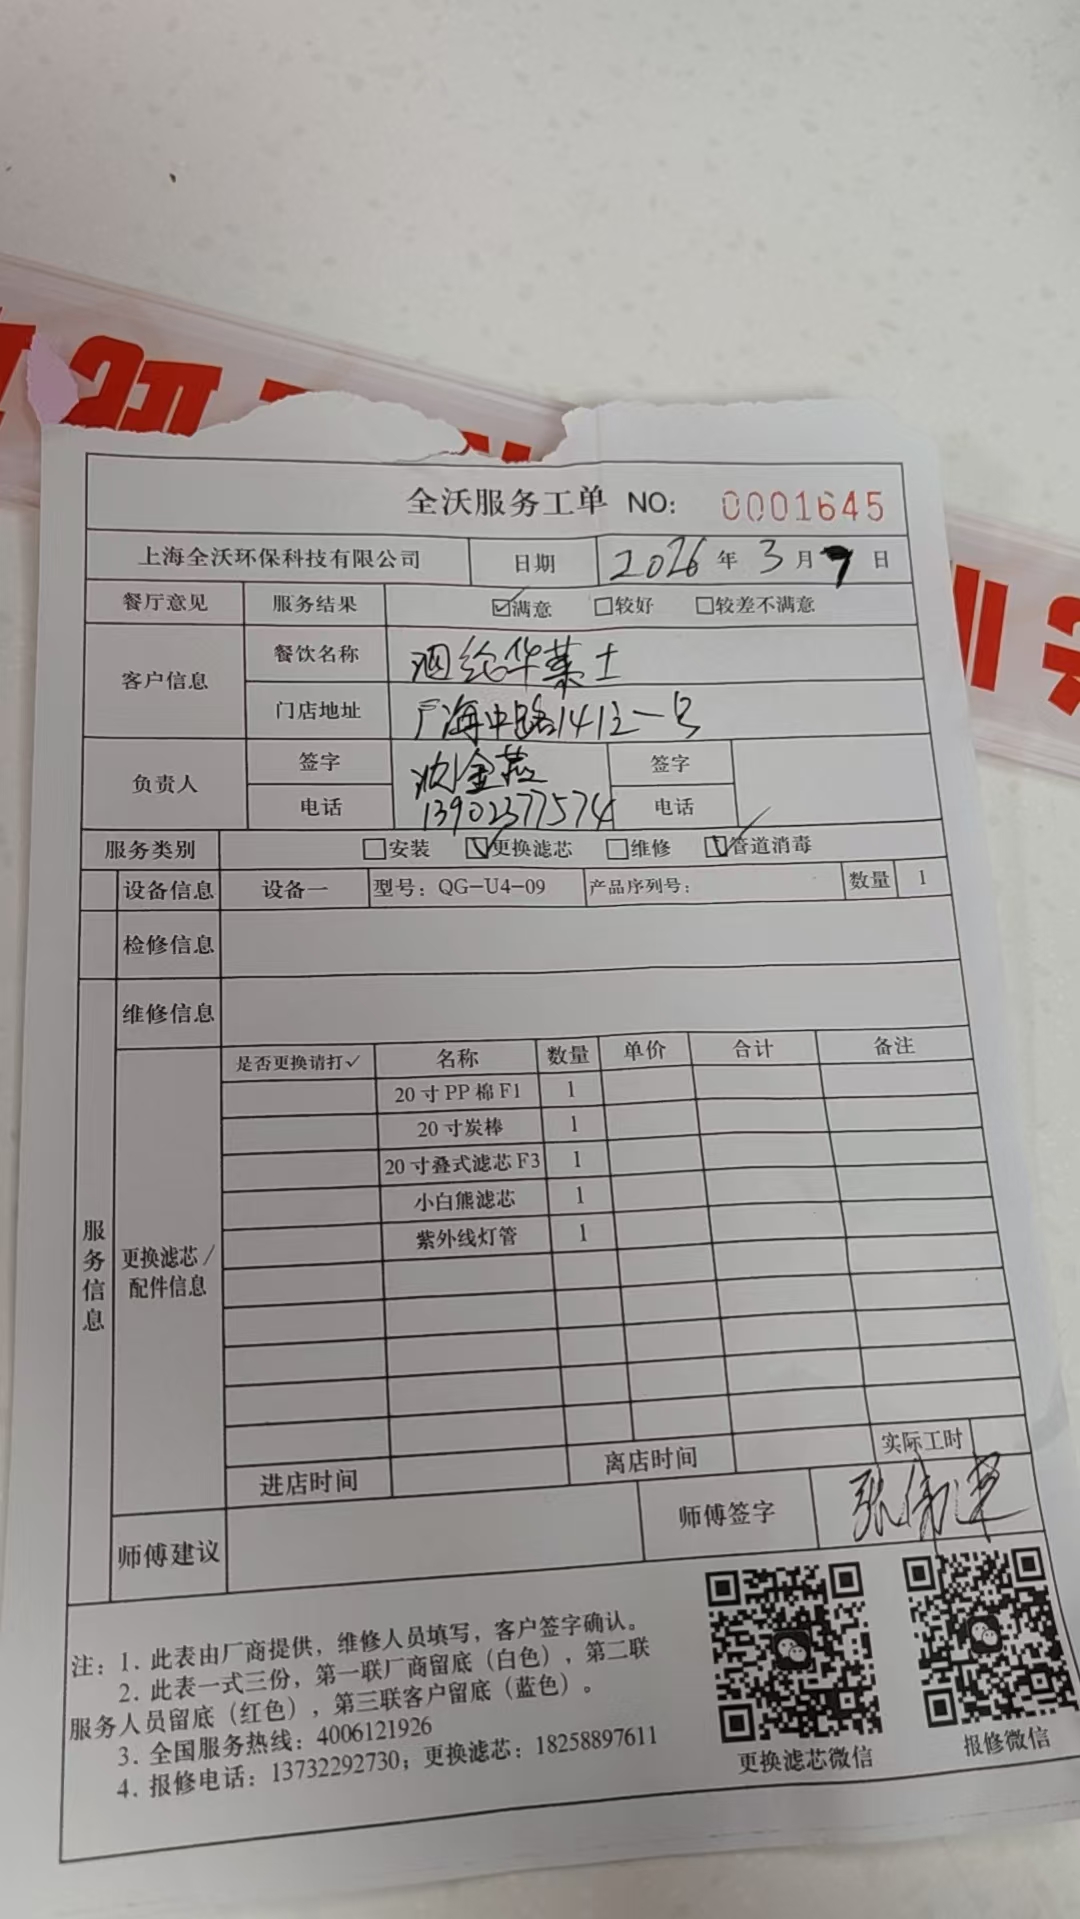 全沃服务工单 NO: 0001645
上海全沃环保科技有限公司 日期 2026年3月9日
餐厅意见 服务结果 ☑满意 □较好 □较差不满意
客户信息 餐饮名称 华莱士
门店地址 海中路1412一号
负责人 签字 沈金燕 签字
电话 13902377574 电话
服务类别 □安装 ☑更换滤芯 □维修 ☑管道消毒
设备信息 设备一 型号：QG-U4-09 产品序列号： 数量 1
检修信息
维修信息
服务信息
更换滤芯/配件信息
是否更换请打✓ 名称 数量 单价 合计 备注
20寸PP棉F1 1
20寸炭棒 1
20寸叠式滤芯F3 1
小白熊滤芯 1
紫外线灯管 1
进店时间 离店时间 实际工时
师傅建议 师傅签字 张伟
注：1. 此表由厂商提供，维修人员填写，客户签字确认。
2. 此表一式三份，第一联厂商留底（白色），第二联
服务人员留底（红色），第三联客户留底（蓝色）。
3. 全国服务热线：4006121926
4. 报修电话：13732292730；更换滤芯：18258897611
更换滤芯微信 报修微信